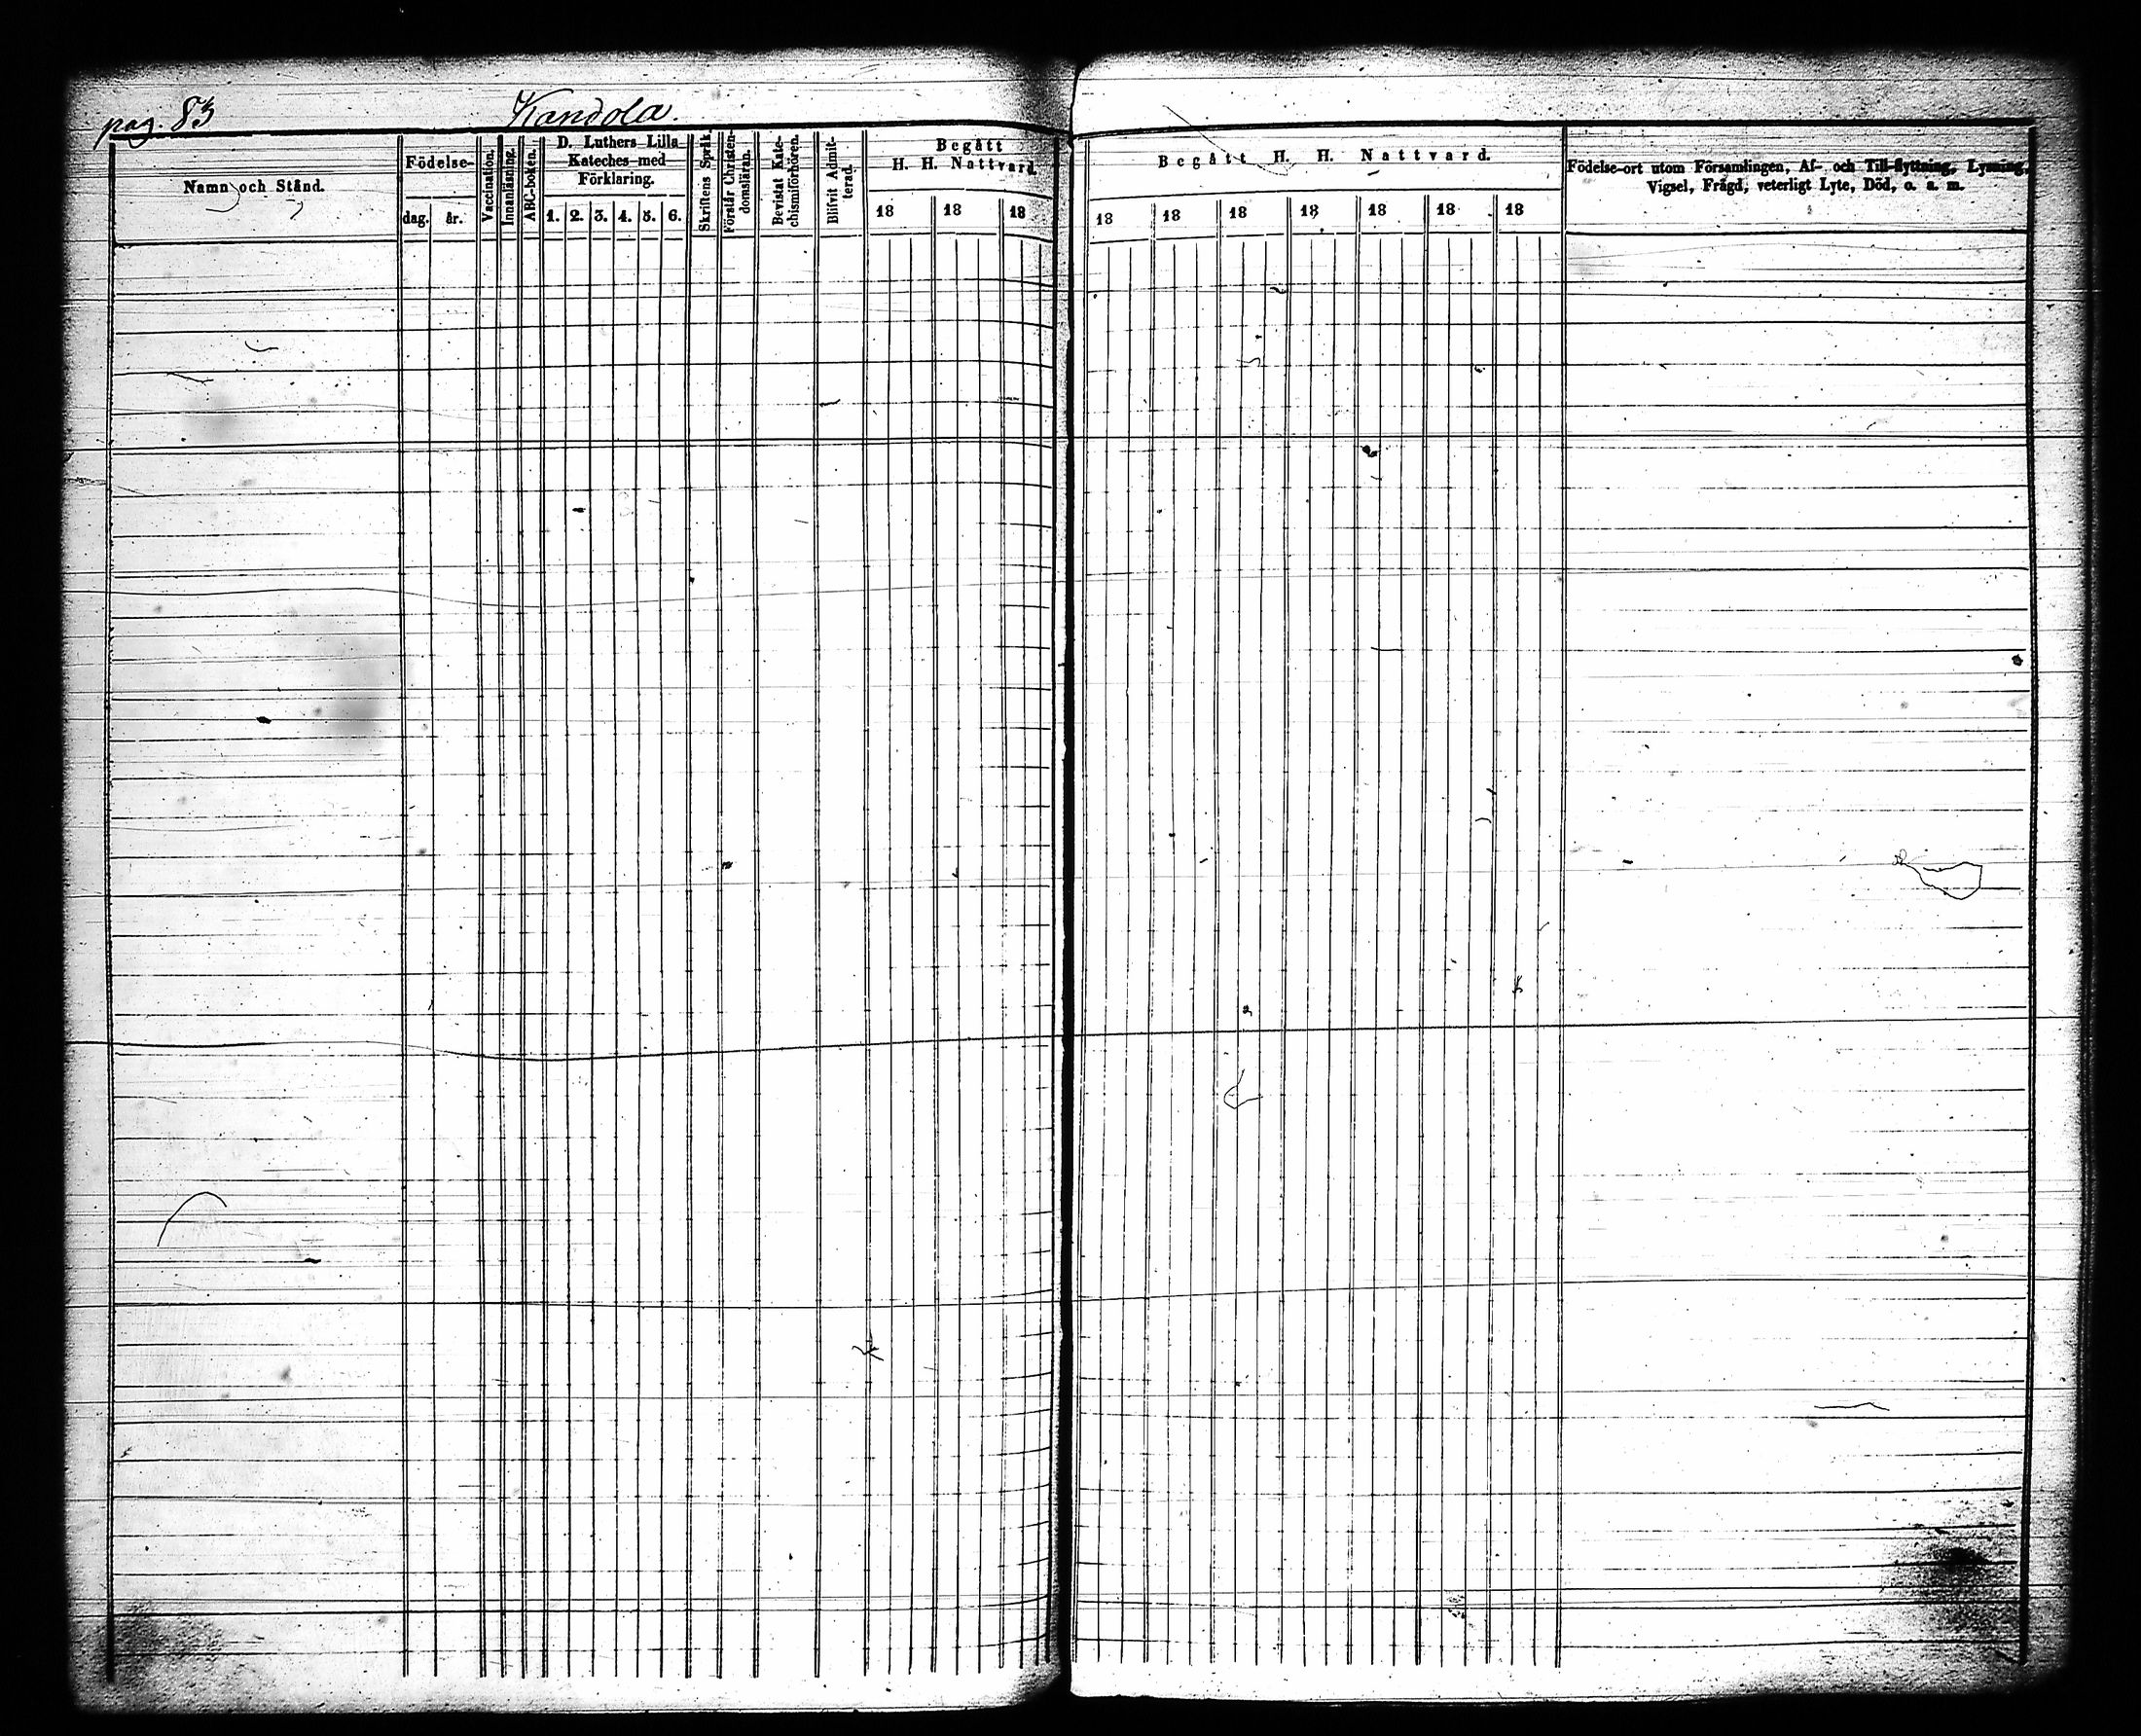 pag. 83
Kandola.
Namn och Stånd.
Födelse-
dag.
år.
Vaccination.
Innanläsning.
ABC-boken.
D. Luthers Lilla
Kateches med
Förklaring.
1. 2. 3. 4. 5. 6.
Skriftens Språk.
Förstår Christen-
domsläran.
Bevistat Kate-
chismiförhören.
Blifvit Admit-
terad.
Begått
H. H. Nattvard.
18 18 18
Begått H. H. Nattvard.
18 18 18 18 18 18 18
Födelse-ort utom Församlingen, Af- och Till-flyttning, Lysning,
Vigsel, Frägd, veterligt Lyte, Död, o. s. m.